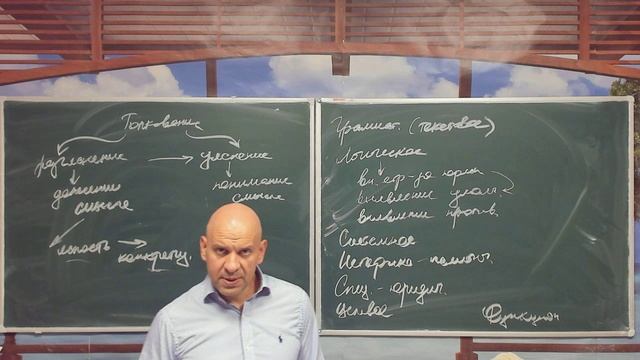 Толкование
разъяснение → уяснение
донести понимание
смысл смысла
ясность → конкретиз.
Граммат. (текстовое)
Логическое
выявление
выявление против.
Системное
Историко-полит.
Спец.-юридич.
Целевое
Функцион